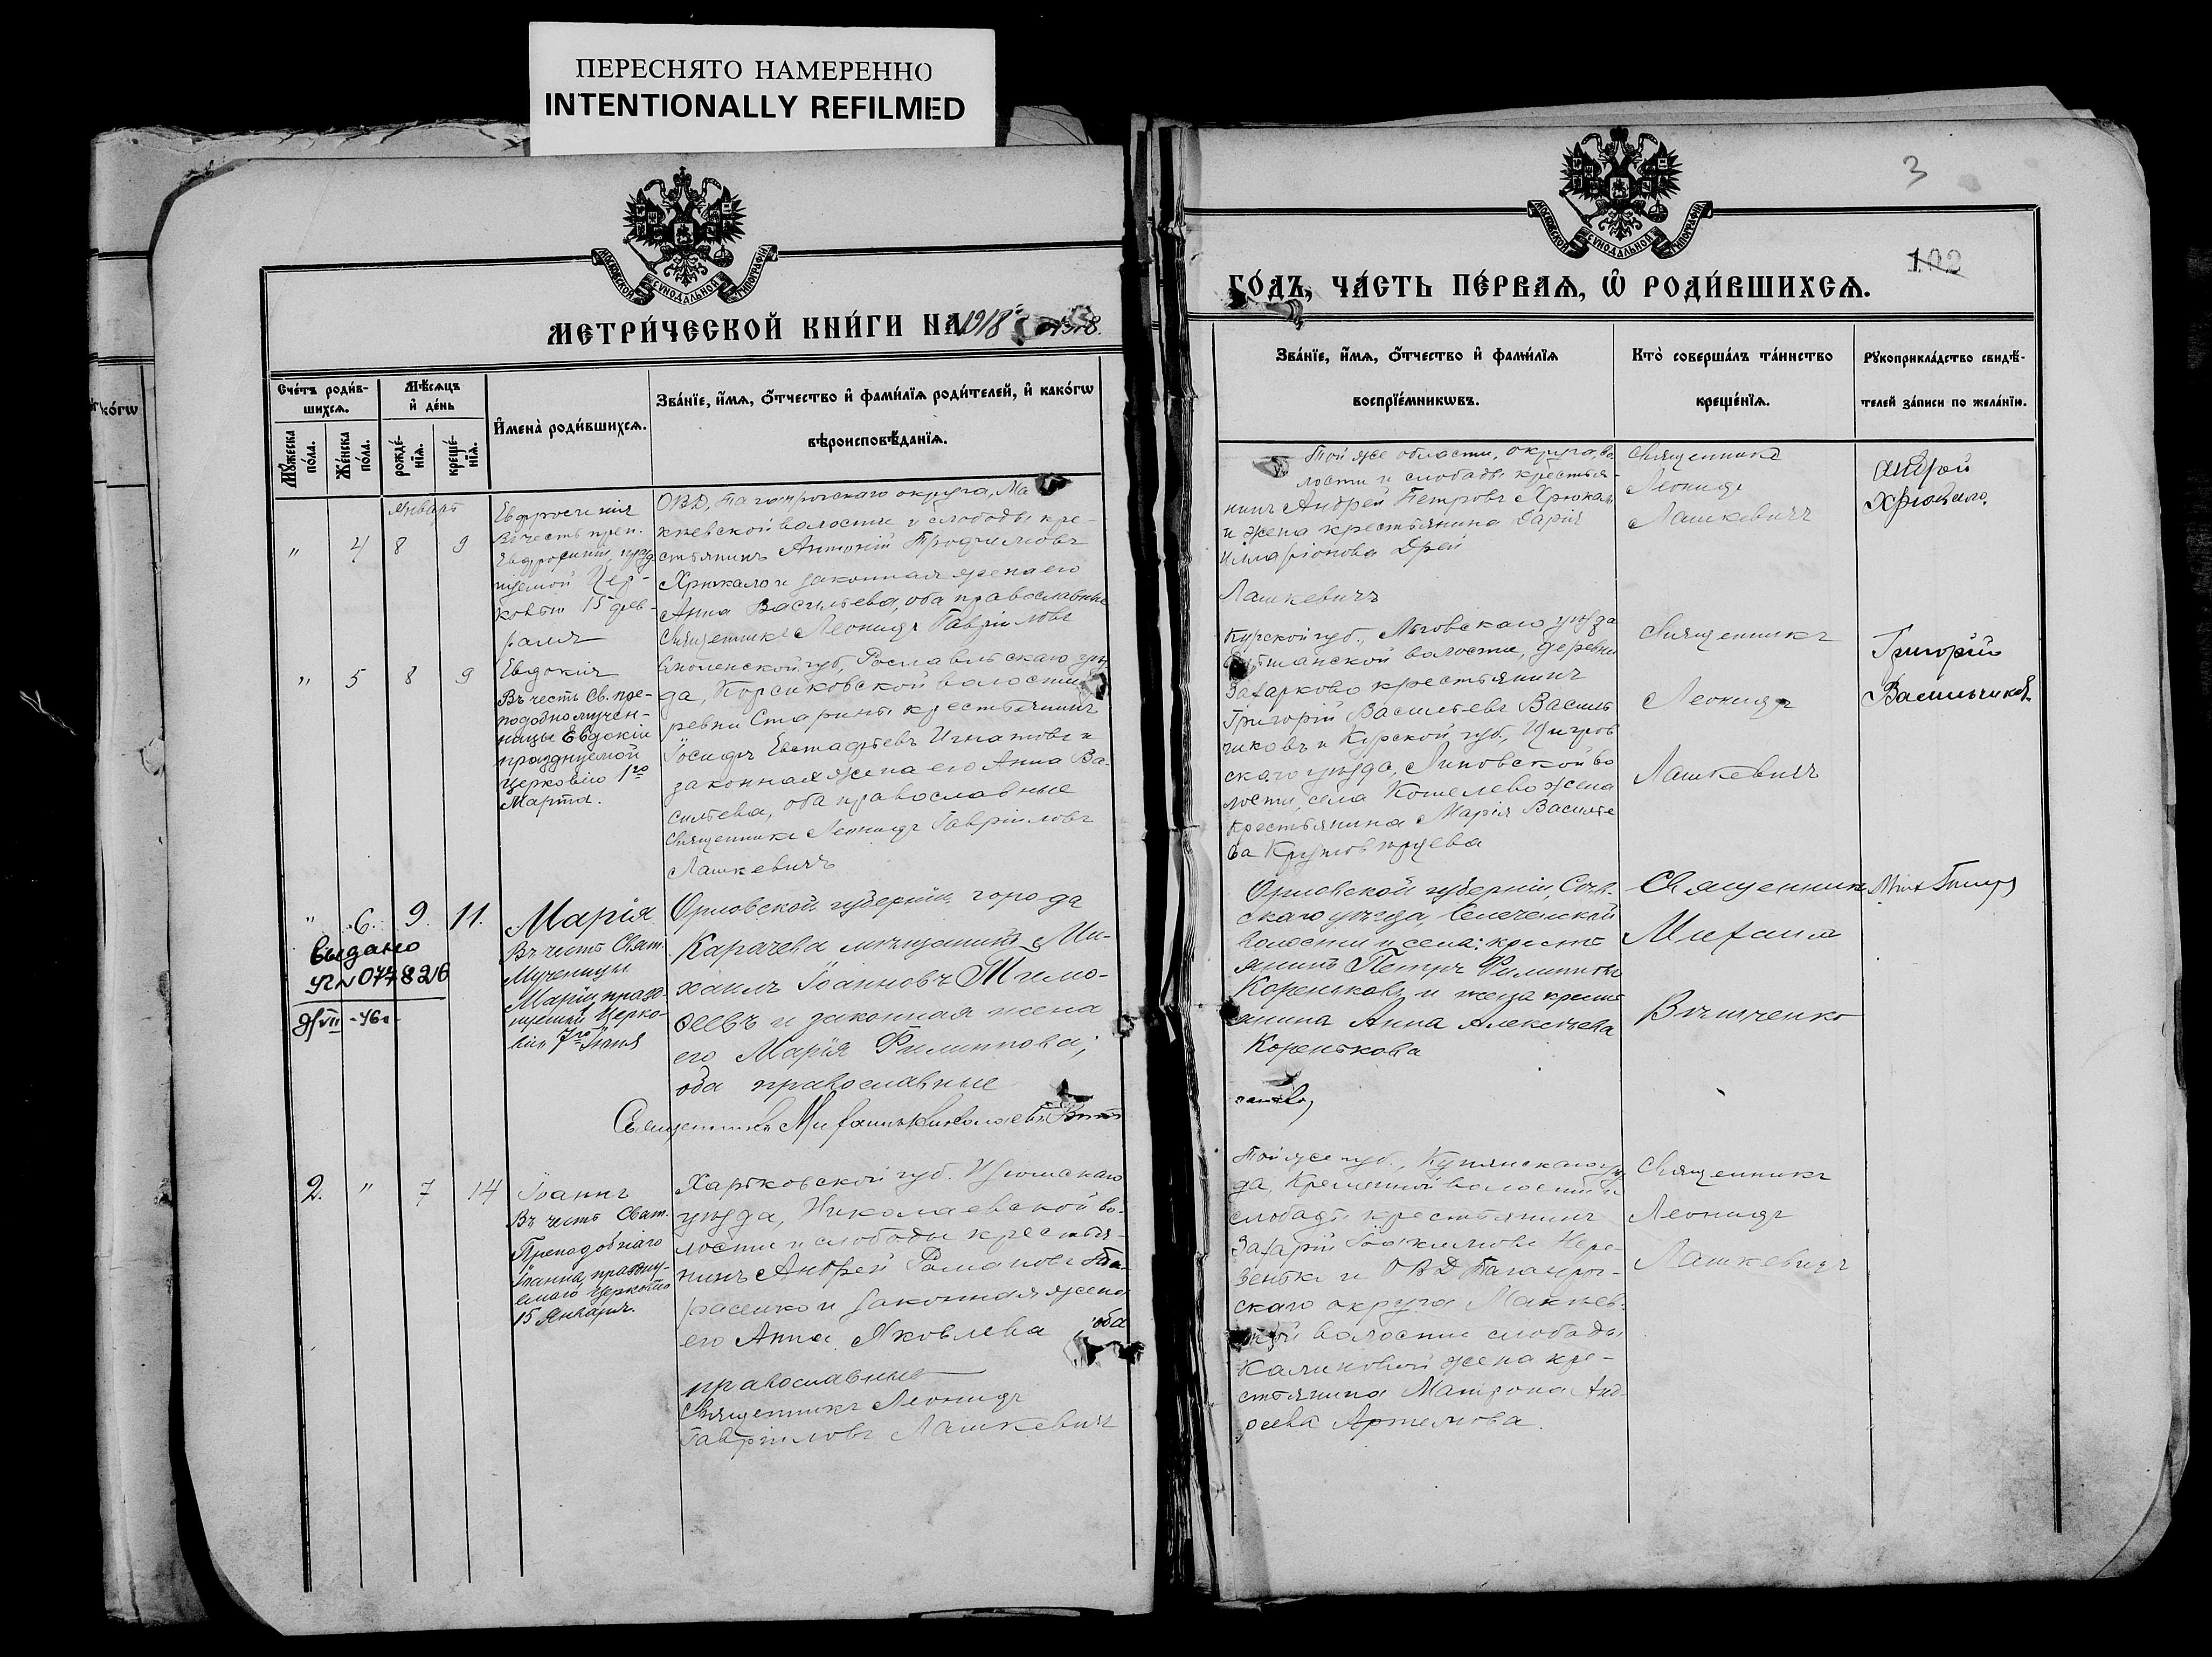 ПЕРЕСНЯТО НАМЕРЕННО
INTENTIONALLY REFILMED
МОСКОВСКОЙ СѴНОДАЛЬНОЙ ТИПОГРАФІИ
МЕТРИ́ЧЕСКОЙ КНИ́ГИ НА 1918
Сче́тъ роди́в-
шихсѧ.
Мꙋ́жеска по́ла.
Же́нска по́ла.
Мѣ́сѧцъ
и҆ де́нь
рожде́-
нїѧ.
креще́-
нїѧ.
И҆мена̀ роди́вшихсѧ.
Зва́нїе, и҆́мѧ, ѻ҆́тчество и҆ фами́лїѧ роди́телей, и҆ како́гѡ
вѣроисповѣ́данїѧ.
январь
" 4 8 9
Евфросинія
Въ честь преп.
Евфросиніи празд
нуемой Цер-
ковью 15 фев-
раля
ОВД, Таганрогскаго округа, Ма
кѣевской волости и слободы кре-
стьянинъ Антоній Трофимовъ
Хрюкало и законная жена его
Анна Васильева, оба православные
Священникъ Леонидъ Гавріиловъ
" 5 8 9
Евдокія
Въ честь Св. пре-
подобномучен-
ницы Евдокіи
празднуемой
Церковію 1го
Марта.
Смоленской губ, Рославльскаго уѣз
да, Корсиковской волости
ревни Старины крестьянинъ
Іосифъ Евстафьевъ Игнатовъ и
законная жена его Анна Ва-
сильева, оба православные
Священникъ Леонидъ Гавріиловъ
Лашкевичъ
" 6. 9. 11.
выдано
УП № 077826
9/VII - 46г
Марія
Въ честь Свят.
Мученицы
Маріи празд-
нуемой Церко-
вію 7го Іюня
Орловской губерніи, города
Карачева мѣщанинъ Ми-
хаилъ Іоанновъ Тимо-
ѳеевъ и законная жена
его Марія Филиппова;
оба православные
Священникъ Михаилъ Николаевъ
2. " 7 14
Іоаннъ
Въ честь Свят.
Преподобнаго
Іоанна, праздну-
емаго Церковію
15 Января.
Харьковской губ. Изюмскаго
уѣзда, Николаевской во-
лости и слободы крестья-
нинъ Андрей Романовъ Та-
расенко и законная жена
его Анна Яковлева оба
православные
Священникъ Леонидъ
Гавріиловъ Лашкевичъ
3
102
МОСКОВСКОЙ СѴНОДАЛЬНОЙ ТИПОГРАФІИ
ГО́ДЪ, ЧА́СТЬ ПЕ́РВАѦ, Ѡ҆ РОДИ́ВШИХСѦ.
Зва́нїе, и҆́мѧ, ѻ҆́тчество и҆ фами́лїѧ
воспрїе́мникѡвъ.
Кто̀ соверша́лъ та́инство
креще́нїѧ.
Рꙋкоприкла́дство свидѣ́-
телей за́писи по жела́нїю.
Той же области, округа, во
лости и слободы крестья-
нинъ Андрей Петровъ Хрюкало
и жена крестьянина Дарія
Илларіонова Дрей
Лашкевичъ
Священникъ
Леонидъ
Лашкевичъ
Андрей
Хрюкало.
Курской губ., Льговскаго уѣзда
волости, деревни
Захарково крестьянинъ
Григорій Васильевъ Василь
чиковъ и Курской губ., Щигров
скаго уѣзда, Липовской во
лости, села Кошелево жена
крестьянина Марія Василье
ва
Священникъ
Леонидъ
Лашкевичъ
Григорій
Васильчиковъ
Орловской губерніи, Сѣв-
скаго уѣзда,
волости и села: кресть
янинъ Петръ Филипповъ
Кореньковъ и жена кресть
янина Анна Алексѣева
Коренькова
Священникъ
Михаилъ
Той же губ., Купянскаго уѣз
да, Кременной волости и
слободы крестьянинъ
Захарій
и ОВД Таганрог-
скаго округа Макѣев-
ской волости слободы
Калиновой жена кре-
стьянина Матрона Анд-
реева Артемова.
Священникъ
Леонидъ
Лашкевичъ